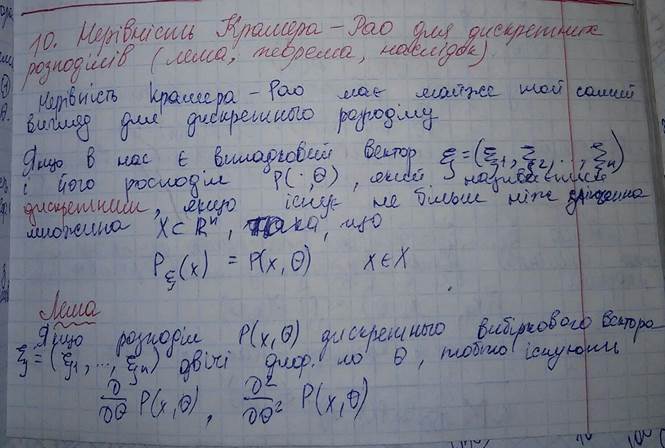 10. Нерівність Крамера-Рао для дискретних
розподілів (лема, теорема, наслідок).
Нерівність Крамера-Рао має майже той самий
вигляд для дискретного розподілу
Якщо в нас є випадковий вектор ξ=(ξ₁, ξ₂, ..., ξₙ)
і його розподіл P(·,θ), який називається
дискретним, якщо існує не більш ніж злічена
множина X⊂ℝⁿ, така, що
P_ξ(x) = P(x,θ) x∈X
Лема
Якщо розподіл P(x,θ) дискретного вибіркового вектора
ξ=(ξ₁, ..., ξₙ) двічі диф. по θ, тобто існують
∂/∂θ P(x,θ), ∂²/∂θ² P(x,θ)